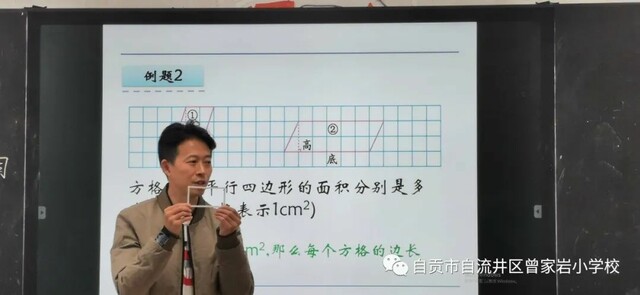 例题2
①
②
高
底
方格 平行四边形的面积分别是多
表示1cm²)
m²,那么每个方格的边长
自贡市自流井区曾家岩小学校